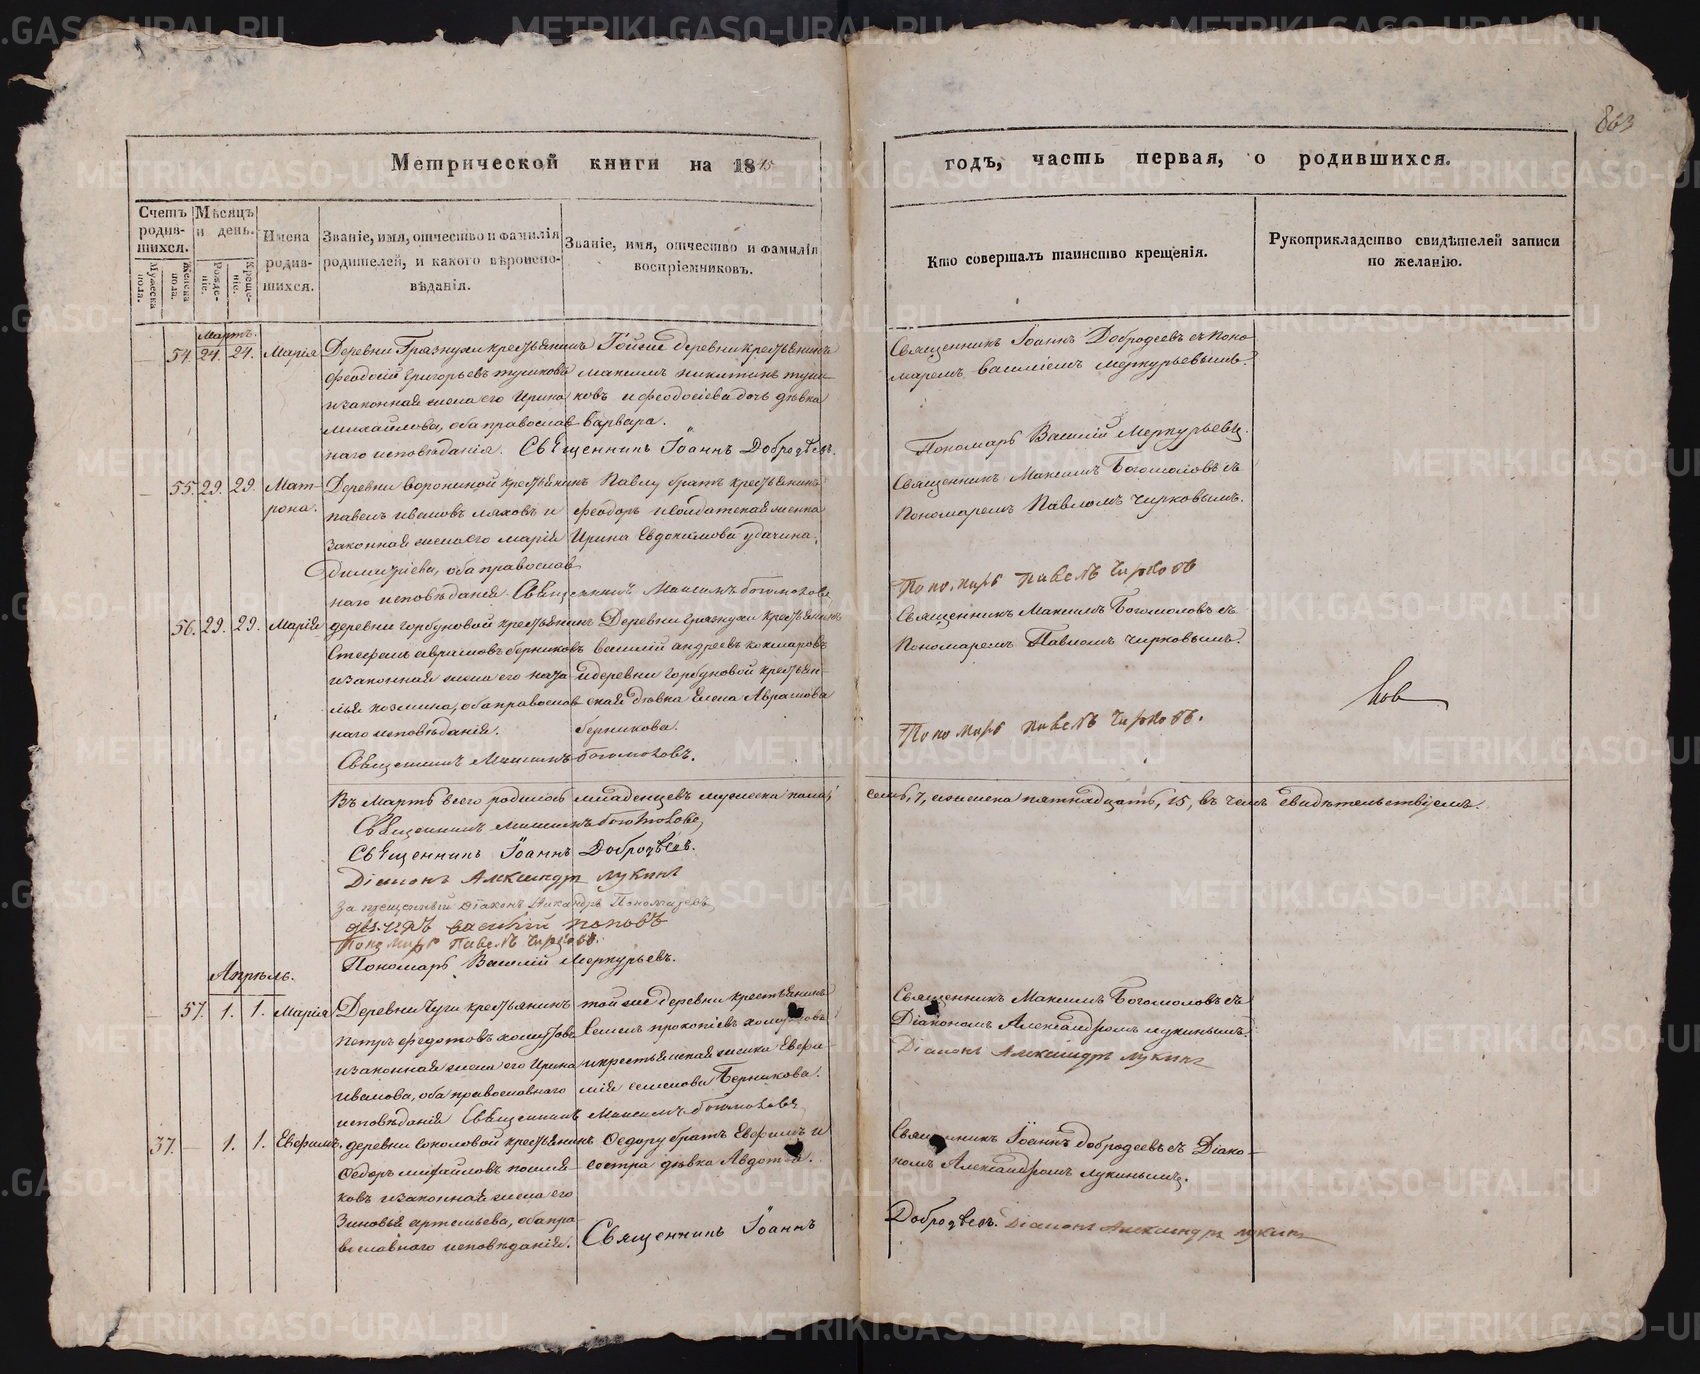 863
Метрической книги на 1845
годъ, часть первая, о родившихся.
Счетъ родив-
шихся.
Мужеска пола.
Женска пола.
Мѣсяцъ и день.
Рожде-
ніе.
Креще-
ніе.
Имена родив-
шихся.
Званіе, имя, отчество и фамилія
родителей, и какого вѣроиспо-
вѣданія.
Званіе, имя, отчество и фамилія
воспріемниковъ.
Кто совершалъ таинство крещенія.
Рукоприкладство свидѣтелей записи
по желанію.
Мартъ.
54. 24. 24. Марія
Деревни Грязнухи крестьянинъ
Феодосій Григорьевъ
и законная жена его Ирина
Михайлова, оба православ-
наго исповѣданія. Священникъ Іоаннъ Добродѣевъ.
Той же деревни крестьянинъ
Максимъ Никитинъ
и Феодосіева дочь дѣвка
Варвара.
Священникъ Іоаннъ Добродеевъ съ Поно-
маремъ Василіемъ Меркурьевымъ.
Пономарь Василій Меркурьевъ.
55. 29. 29. Мат-
рона.
Деревни Ворониной крестьянинъ
Павелъ Ивановъ Ляховъ и
законная жена его Марія
Димитріева, оба православ-
наго исповѣданія. Священникъ Максимъ Богомоловъ
Павлу братъ крестьянинъ
Феодоръ и солдатская женка
Ирина Евдокимова Удачина.
Священникъ Максимъ Богомоловъ съ
Пономаремъ Павломъ Чирковымъ.
Пономарь Павелъ Чирковъ
56. 29. 29. Марія
деревни Горбуновой крестьянинъ
Стефанъ Аврамовъ Берниковъ
и законная жена его Ната-
лья Козмина, оба православ-
наго исповѣданія.
Священникъ Максимъ Богомоловъ.
Деревни Грязнухи крестьянинъ
Василій Андреевъ Кокшаровъ
и деревни Горбуновой крестьян-
ская дѣвка Елена Аврамова
Берникова.
Священникъ Максимъ Богомоловъ съ
Пономаремъ Павломъ Чирковымъ.
Пономарь Павелъ Чирковъ.
Въ Мартѣ всего родилось младенцевъ мужеска пола, семь, 7, а женска пятнадцать, 15, въ чемъ свидѣтельствуемъ.
Священникъ Максимъ Богомоловъ,
Священникъ Іоаннъ Добродѣевъ.
Діаконъ Александръ Лукинъ
Діаконъ Никандръ Пономаревъ
Василій Поповъ
Пономарь Павелъ Чирковъ.
Пономарь Василій Меркурьевъ.
Апрѣль.
57. 1. 1. Марія
Деревни Чуги крестьянинъ
Петръ Федотовъ
и законная жена его Ирина
Иванова, оба православнаго
исповѣданія Священникъ Максимъ Богомоловъ
той же деревни крестьянинъ
Семенъ Прокопіевъ
и крестьянская женка Евфи-
мія Семенова Берникова.
Священникъ Максимъ Богомоловъ съ
Діакономъ Александромъ Лукинымъ.
Діаконъ Александръ Лукинъ
37. 1. 1. Евфимъ.
деревни Соколовой крестьянинъ
Ѳедоръ Михайловъ
и законная жена его
Зиновья Артемьева, оба пра-
вославнаго исповѣданія.
Ѳедору братъ Евфимъ и
сестра дѣвка Авдотья.
Священникъ Іоаннъ
Священникъ Іоаннъ Добродеевъ съ Діако-
номъ Александромъ Лукинымъ.
Добродѣевъ. Діаконъ Александръ Лукинъ
METRIKI.GASO-URAL.RU